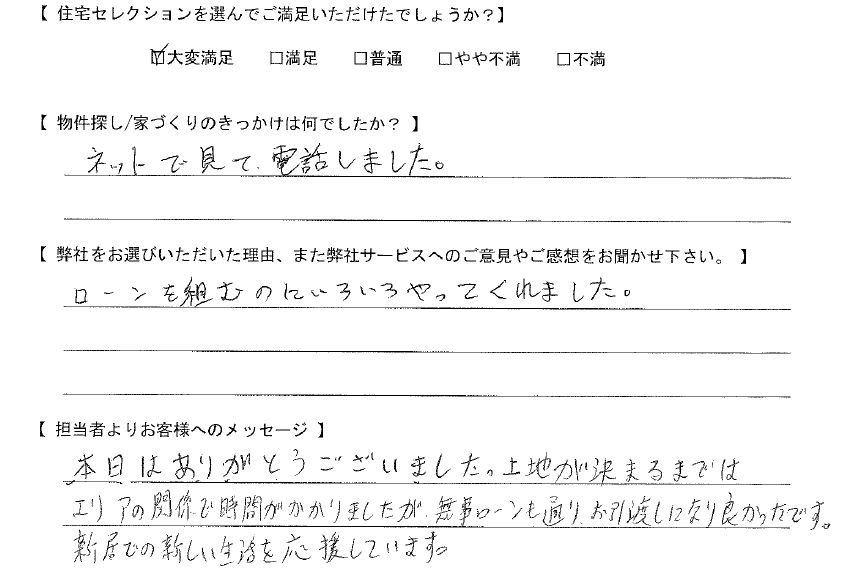 【 住宅セレクションを選んでご満足いただけたでしょうか？】
☑大変満足 □満足 □普通 □やや不満 □不満
【 物件探し/家づくりのきっかけは何でしたか？ 】
ネットで見て、電話しました。
【 弊社をお選びいただいた理由、また弊社サービスへのご意見やご感想をお聞かせ下さい。 】
ローンを組むのにいろいろやってくれました。
【 担当者よりお客様へのメッセージ 】
本日はありがとうございました。土地が決まるまでは
エリアの関係で時間がかかりましたが、無事ローンも通り、お引渡しになり良かったです。
新居での新しい生活を応援しています。